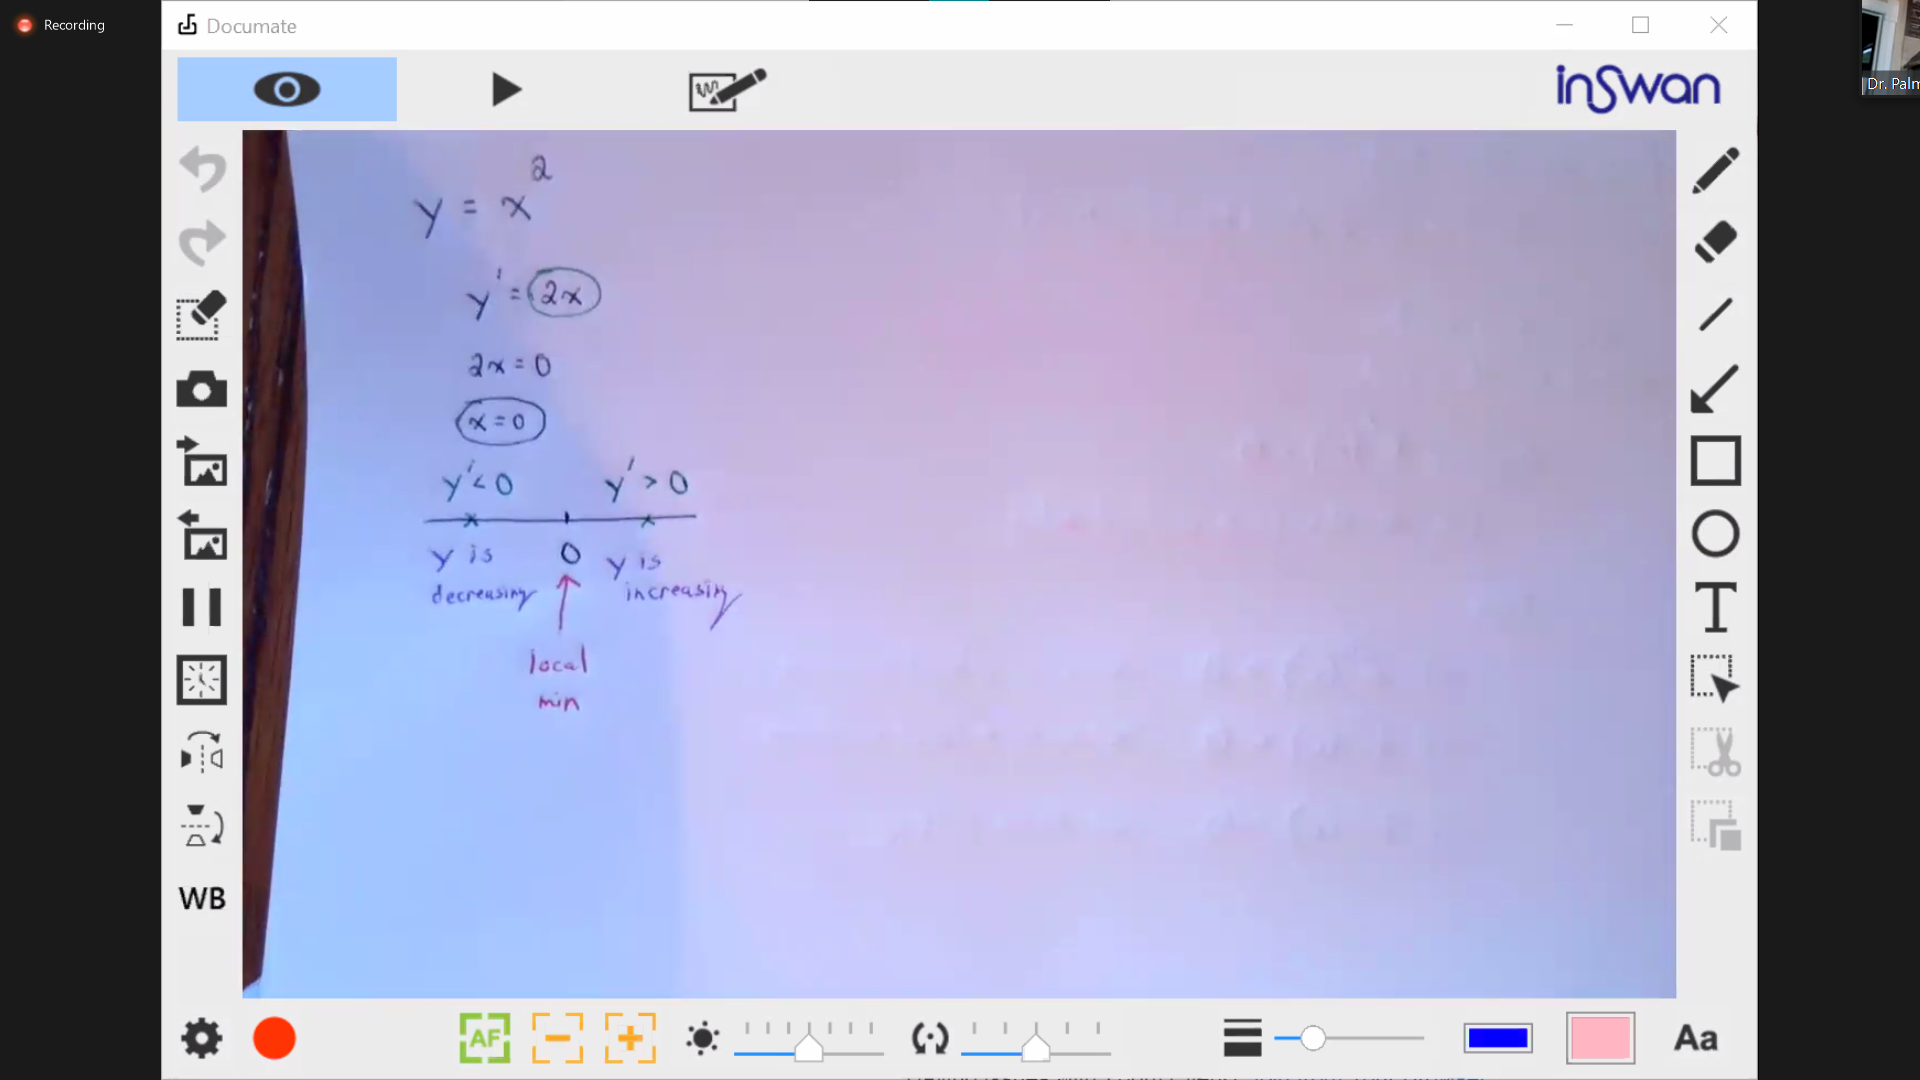 Recording
Documate
inSwan
Dr. Palm
y = x²
y' = 2x
2x = 0
x = 0
y' < 0 y' > 0
y is 0 y is
decreasing increasing
local
min
WB
AF
T
Aa